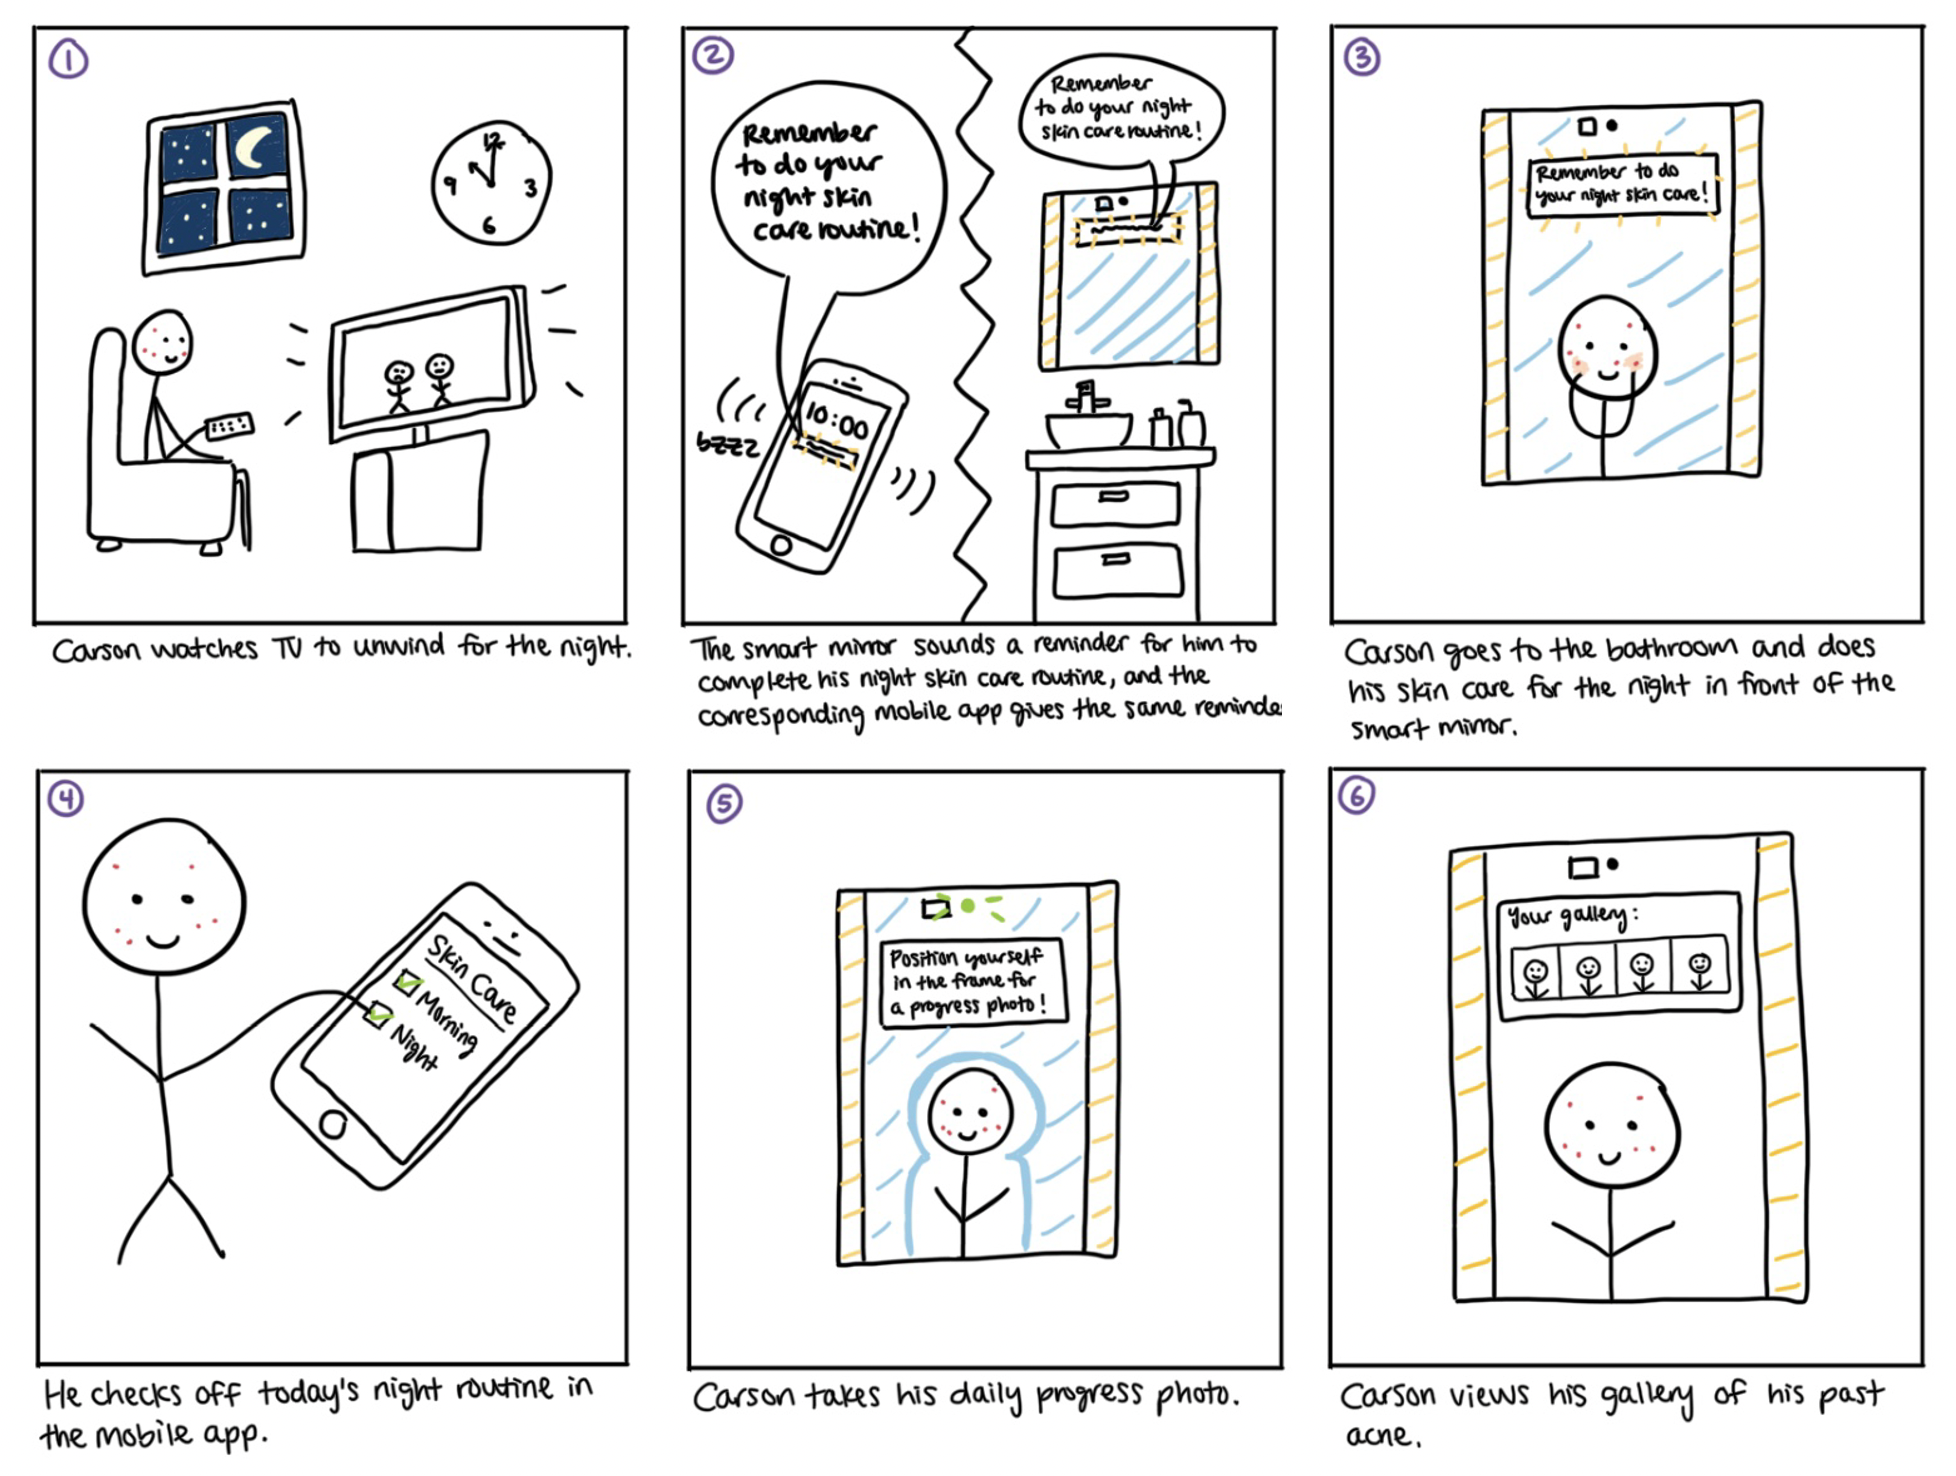 1
12
9 3
6
Carson watches TV to unwind for the night.
2
Remember
to do your
night skin
care routine!
bzzz
10:00
Remember
to do your night
skin care routine!
The smart mirror sounds a reminder for him to
complete his night skin care routine, and the
corresponding mobile app gives the same reminde
3
Remember to do
your night skin care!
Carson goes to the bathroom and does
his skin care for the night in front of the
smart mirror.
4
Skin Care
Morning
Night
He checks off today's night routine in
the mobile app.
5
Position yourself
in the frame for
a progress photo!
Carson takes his daily progress photo.
6
Your gallery:
Carson views his gallery of his past
acne.